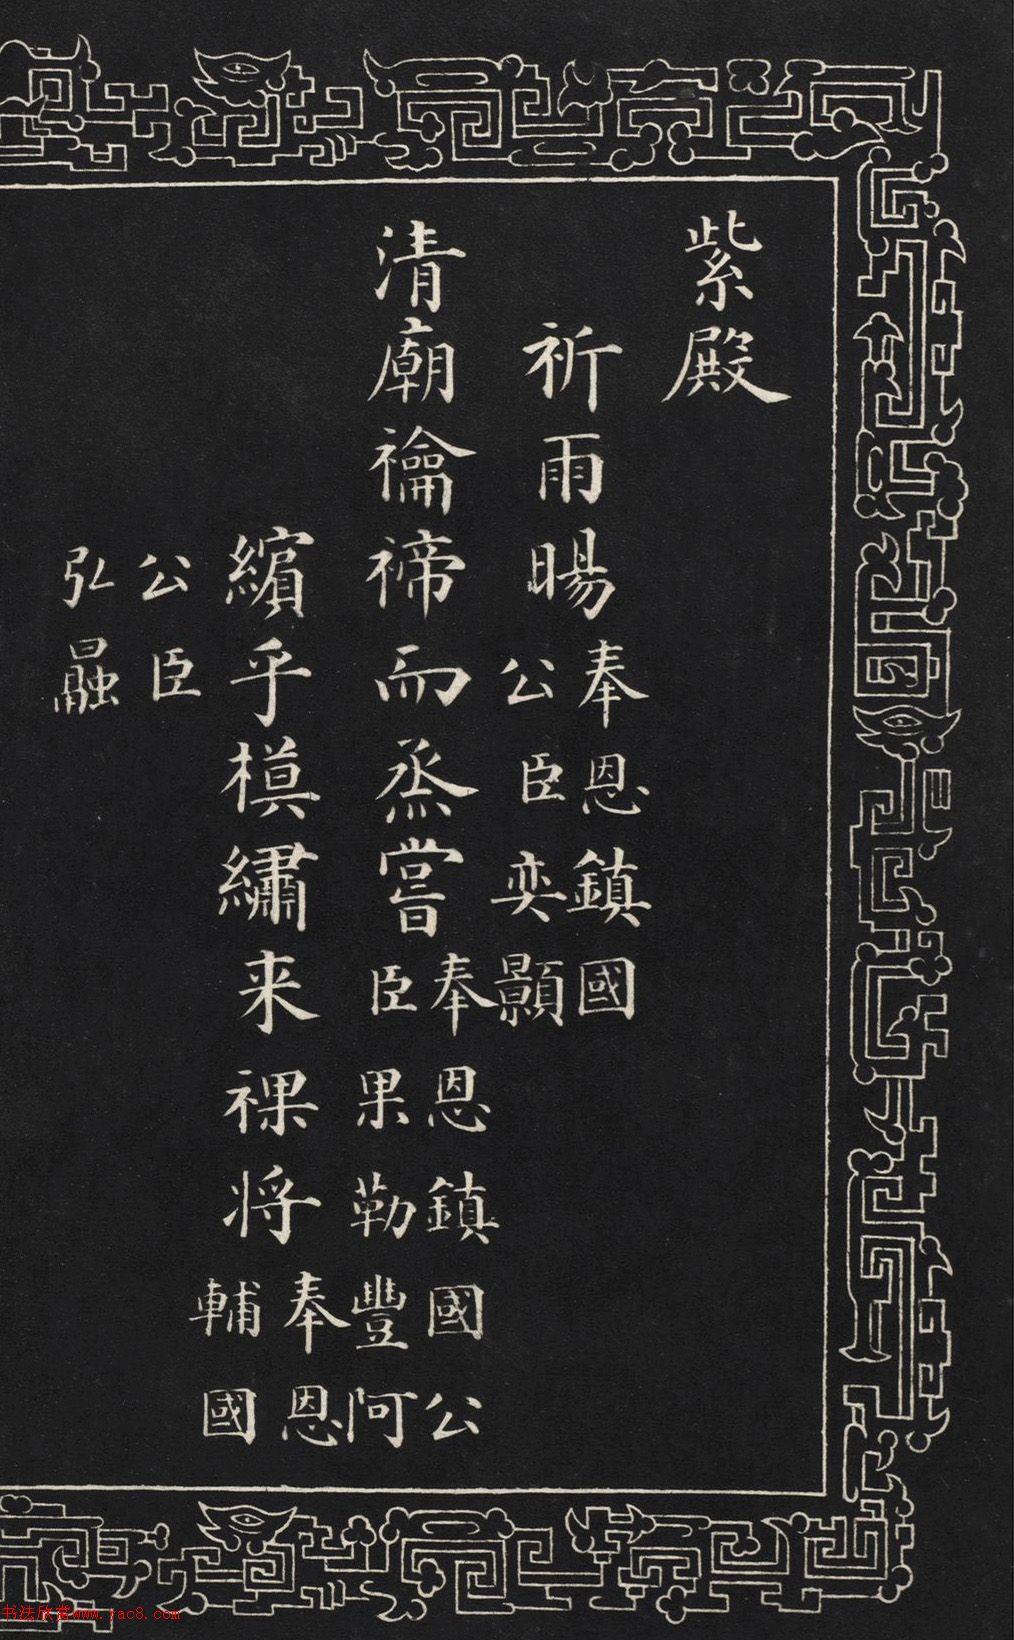 紫殿
祈雨暘奉恩鎮國
公臣奕顥
清廟禴禘而烝嘗奉恩鎮國公
臣果勒豐阿
繽乎模繡来祼将奉恩
輔國
公臣
弘曧
书法欣赏www.yac8.com